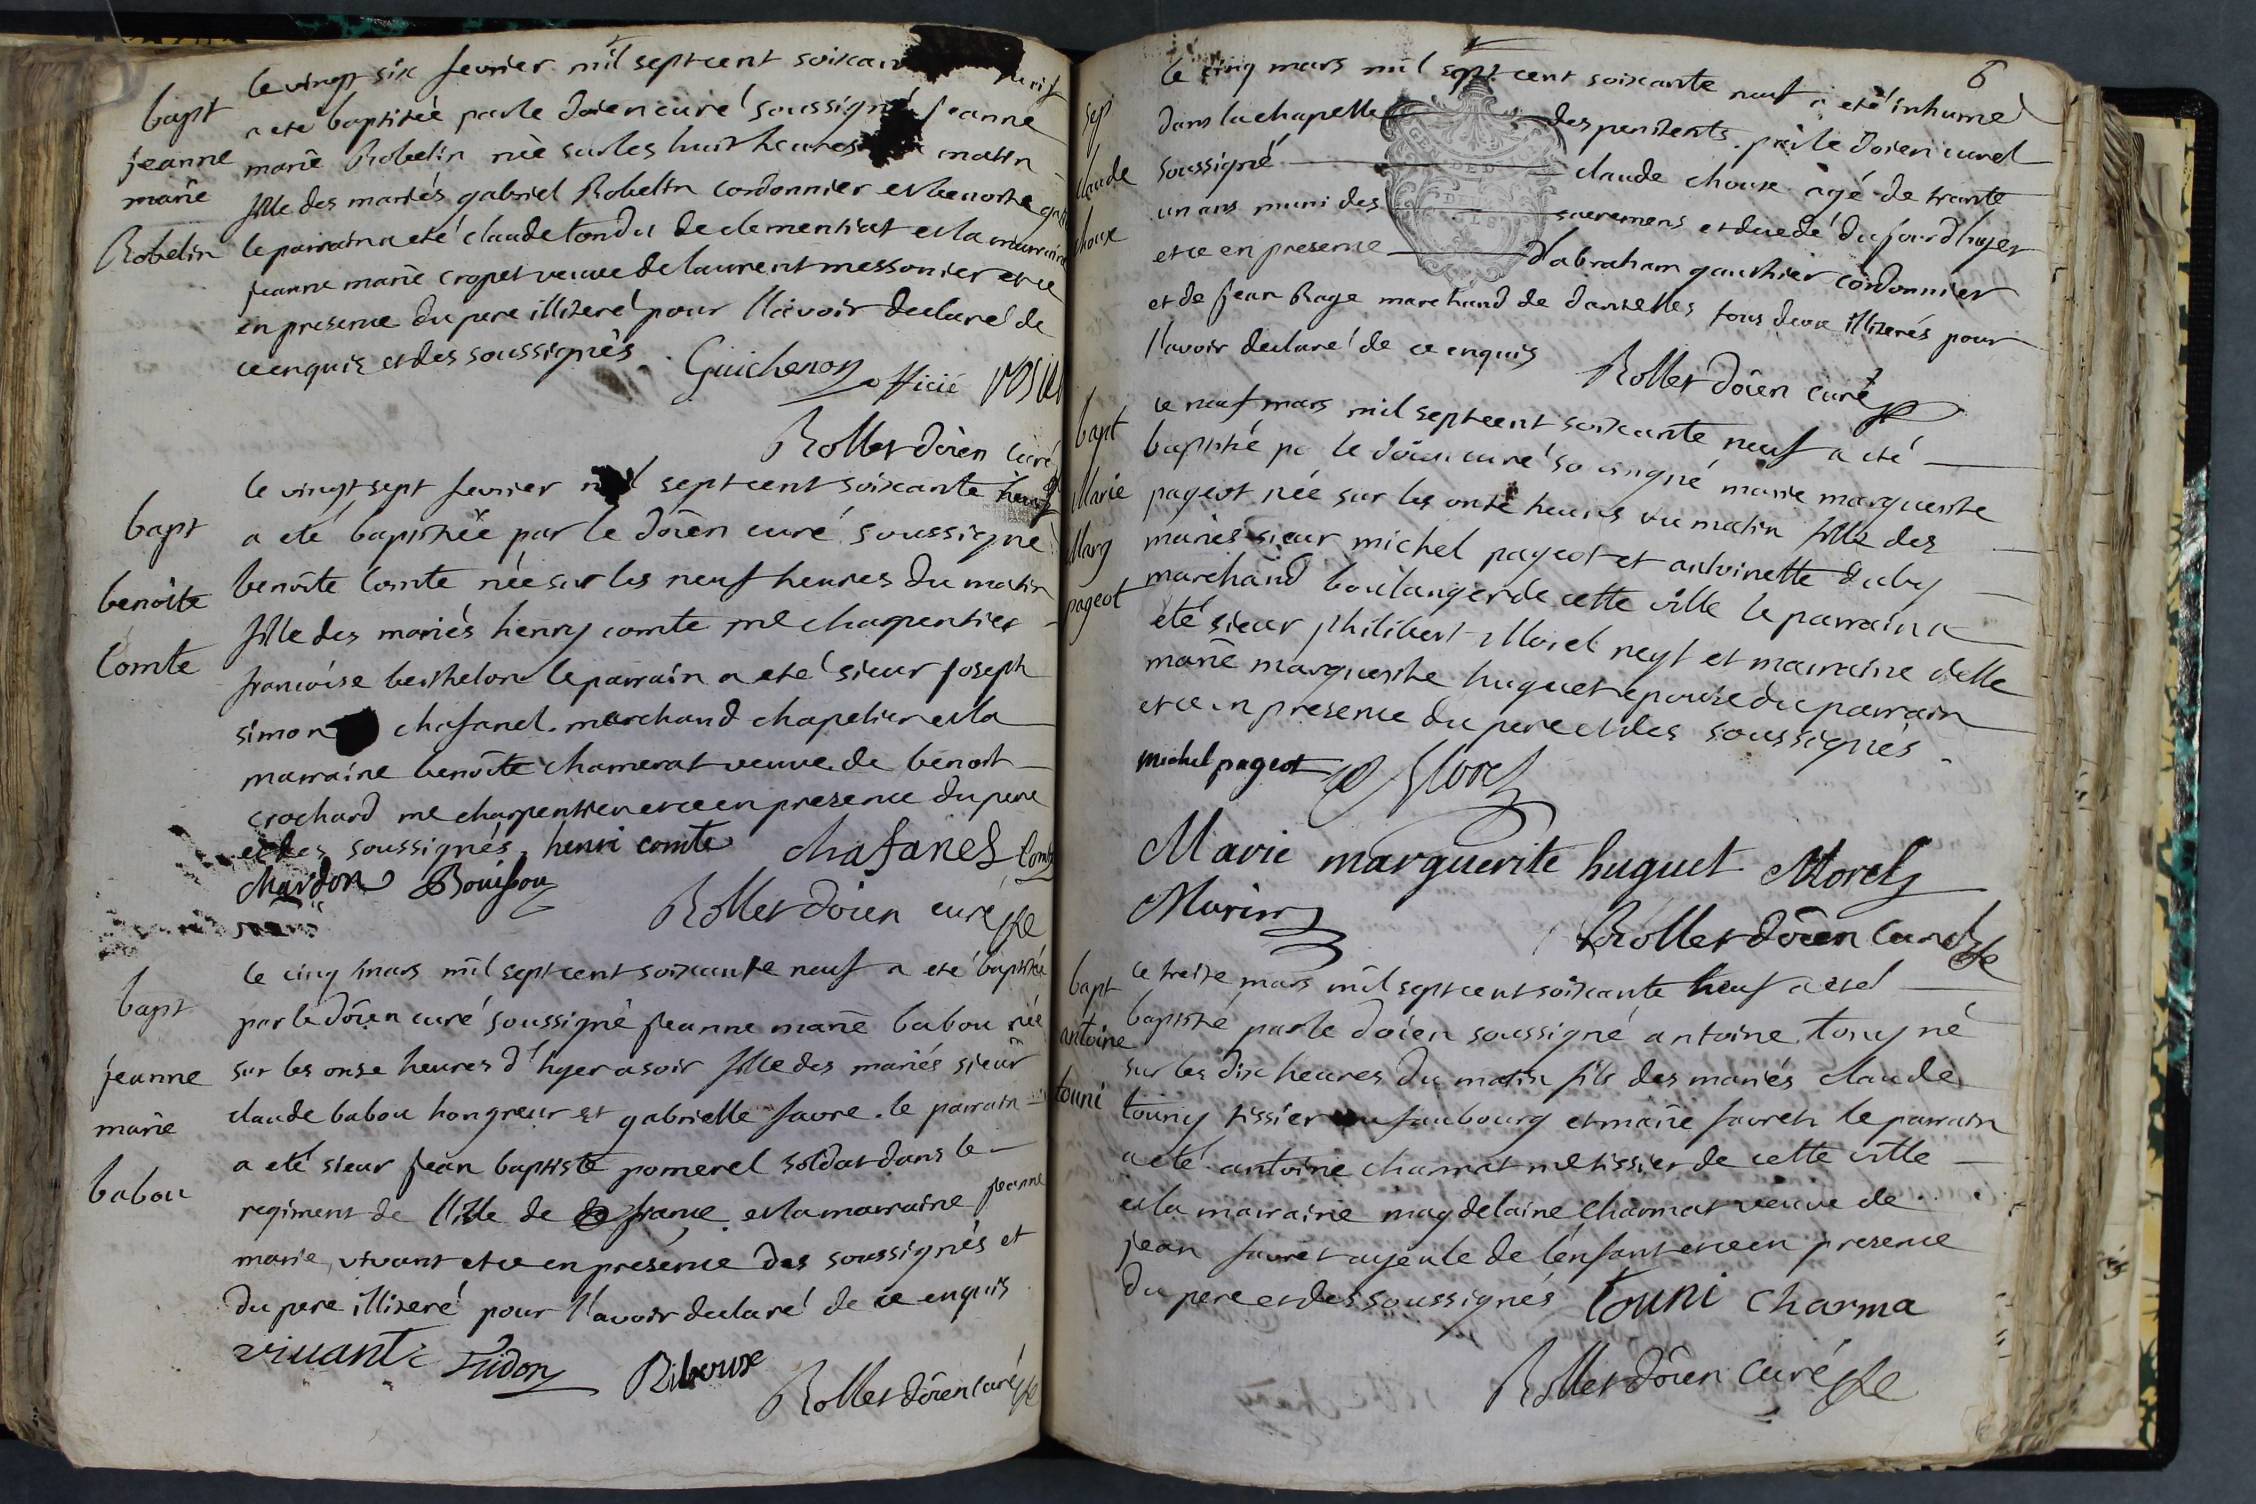 bapt
jeanne
marie
Robelin
le vingt six fevrier mil sept cent soixante neuf
a eté baptisée par le doien curé soussigné jeanne
marie Robelin née sur les huit heures matin
fille des mariés gabriel Robelin cordonnier et benoite
le parrain a eté claude tondu de clementiat et la marraine
jeanne marie cropet veuve de laurent messonier et ce
en presence du pere illiteré pour l'avoir declaré de
ce enquis et des soussignés. Guichenon officié
Roller doien curé
bapt
benoite
Comte
le vingt sept fevrier mil sept cent soixante neuf
a eté baptisée par le doien curé soussigné
benoite Comte née sur les neuf heures du matin
fille des mariés henry comte me charpentier
francoise berthelon le parrain a eté sieur joseph
simon chafanel. marchand chapelier et la
marraine benoite chamerat veuve de benoit
crochard me charpentier et ce en presence du pere
et des soussignés. henri comte chafanel Comte
chardon Bouisson
Roller doien curé
bapt
jeanne
marie
babou
le cinq mars mil sept cent soixante neuf a eté baptisée
par le doien curé soussigné jeanne marie babou née
sur les onse heures d'hyer a soir fille des mariés sieur
claude babou hongreur et gabrielle favre. le parrain
a eté sieur jean baptiste pomerel soldat dans le
regiment de l'isle de france et la marraine jeanne
marie vivant et ce en presence des soussignés et
du pere illiteré pour l'avoir declaré de ce enquis
vivant Pidon Riboux
Roller doien curé
6
sep
claude
choux
le cinq mars mil sept cent soixante neuf a eté inhumé
dans la chapelle des penitents par le doien curé
soussigné claude choux agé de trente
un ans muni des sacremens et decedé du jour d'hyer
et ce en presence d'abraham gauthier cordonnier
et de jean Rage marchand de dantelles tous deux illiterés pour
l'avoir declaré de ce enquis Roller doien curé
bapt
Marie
Marg
pageot
le neuf mars mil sept cent soixante neuf a eté
baptisé par le doien curé marie marguerite
pageot née sur les onse heures du matin fille des
mariés sieur michel pageot et antoinette duby
marchand boulanger de cette ville le parrain a
eté sieur philibert Morel neyt et marraine delle
marie marguerite huguet epouse du parrain
et ce en presence du pere et des soussignés
michel pageot Morel
Marie marguerite huguet Morel
Marin
Roller doien curé
bapt
antoine
touni
le treise mars mil sept cent soixante neuf a eté
baptisé par le doien soussigné antoine touny né
sur les dix heures du matin fils des mariés claude
touny tissier au faubourg et marie favret le parrain
a eté antoine charmat me tissier de cette ville
et la marraine magdelaine charmat veuve de
jean favret ayeule de l'enfant et ce en presence
du pere et des soussignés touni charma
Roller doien curé